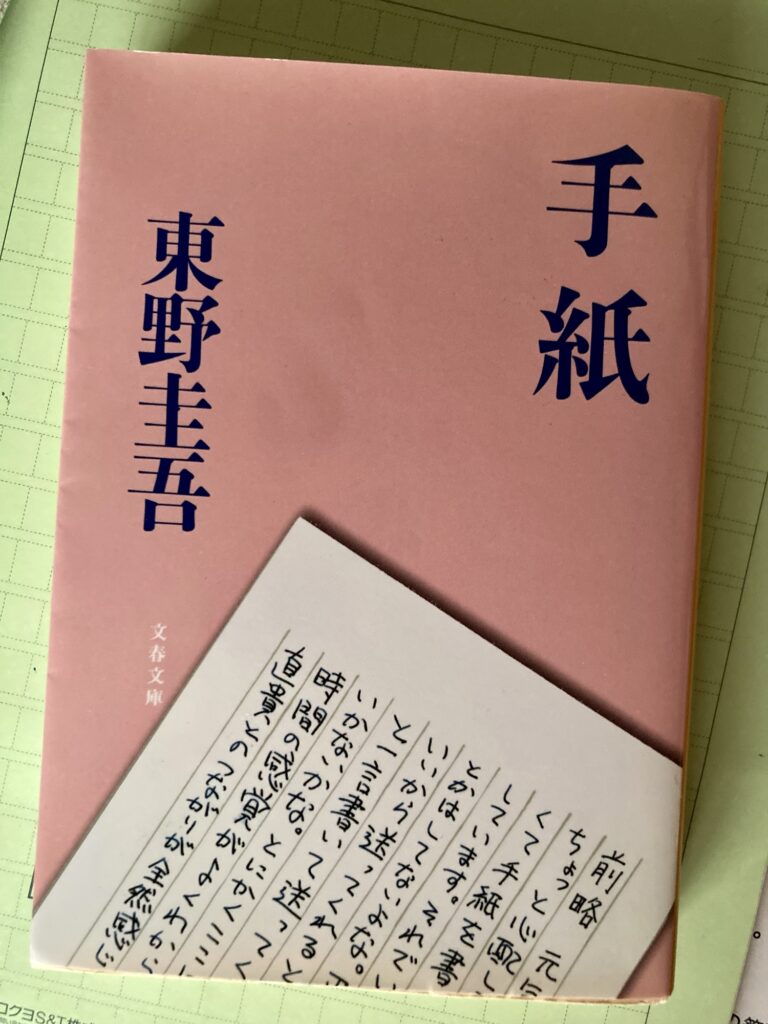 手紙
東野圭吾
文春文庫
前略
ちょっと心配し
くて手紙を書
しています。それでい
とかはしてないよな。
いいから
と一言書いて送ってく
いかないかな。とにかくここ
時間の感覚がよくわから
直貴とのつながりが全然感じ
コクヨS&T株式